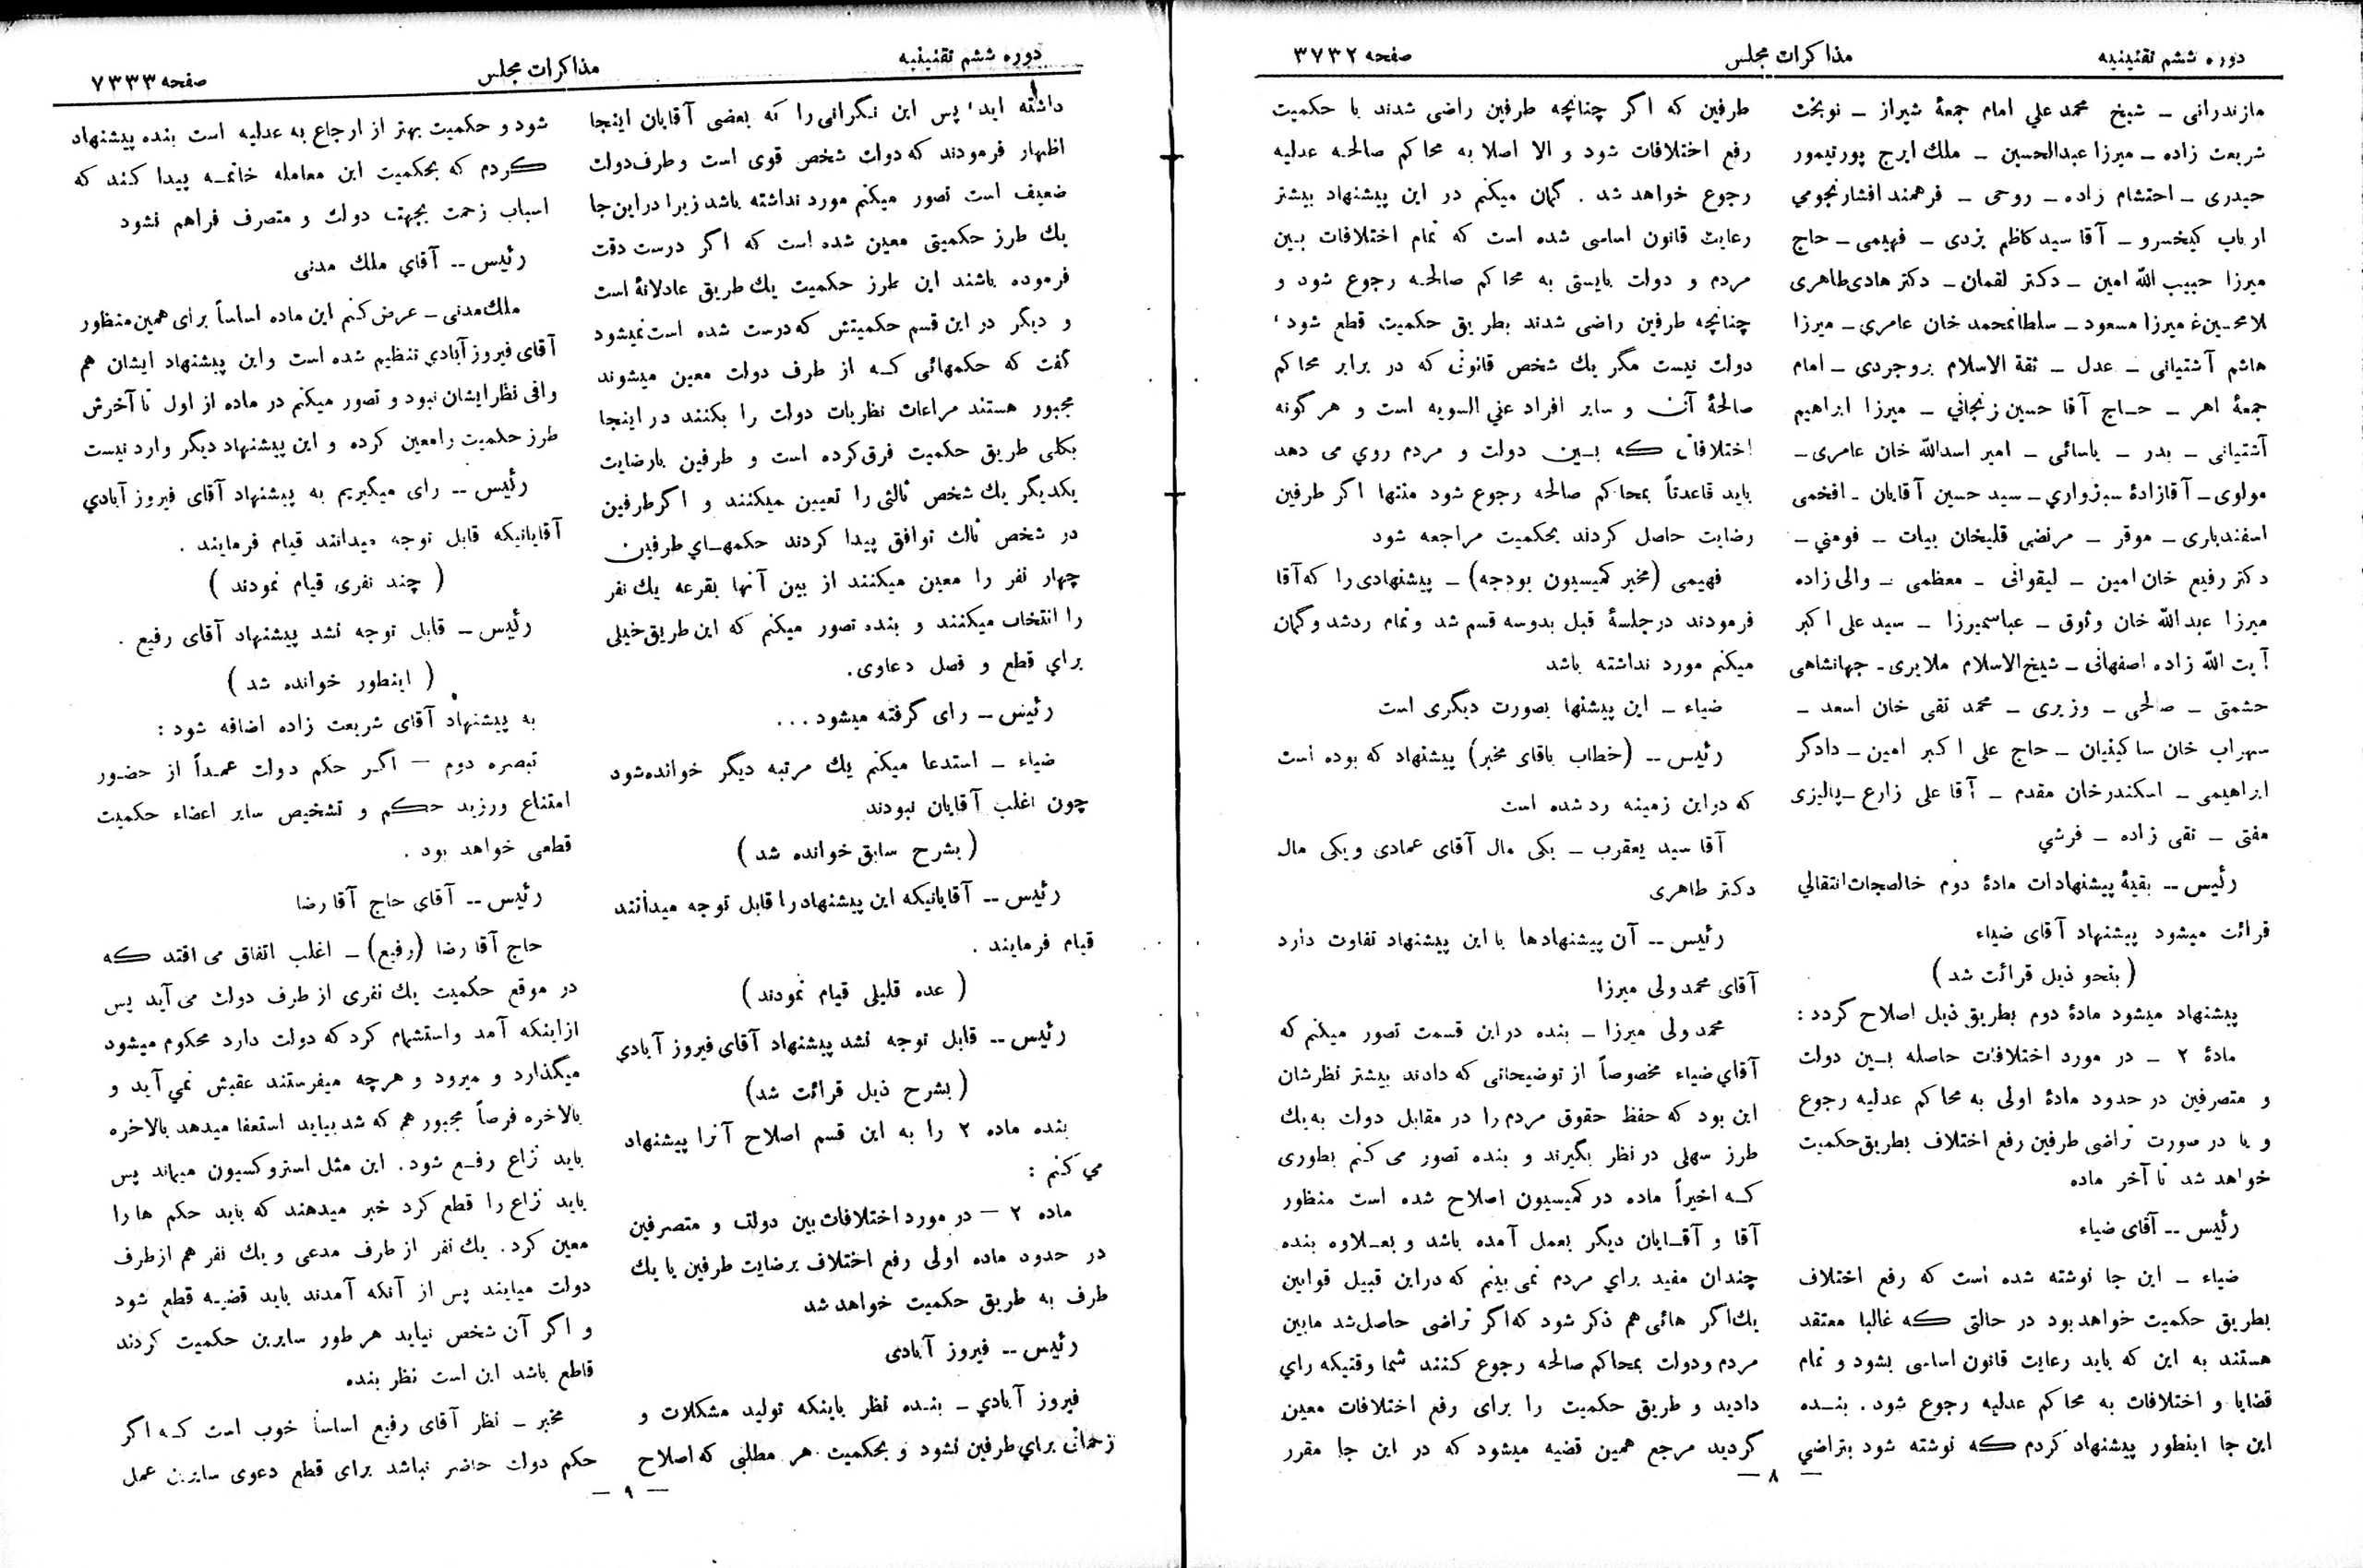 دوره ششم تقنینیه
مذاکرات مجلس
صفحه ۳۷۳۲
مازندرانی – شیخ محمد علی امام جمعهٔ شیراز – نوبخت
شریعت زاده – میرزا عبدالحسین – ملك ایرج پورتیمور
حیدری – احتشام زاده – روحی – فرهمند افشار نجومی
ارباب کیخسرو – آقا سید کاظم یزدی – فهیمی – حاج
میرزا حبیب الله امین – دکتر لقمان – دکتر هادی طاهری
میرزا مسعود – سلطانمحمد خان عامری – میرزا
هاشم آشتیانی – عدل – ثقة الاسلام بروجردی – امام
جمعهٔ اهر – حاج آقا حسین زنجانی – میرزا ابراهیم
آشتیانی – بدر – یاسائی – امیر اسدالله خان عامری –
مولوی – آقازادهٔ سبزواری – سید حسین آقایان – افخمی
اسفندیاری – موقر – مرتضی قلیخان بیات – فومنی –
دکتر رفیع خان امین – لیقوانی – معظمی – والی زاده
میرزا عبدالله خان وثوق – عباسمیرزا – سید علی اکبر
آیت الله زاده اصفهانی – شیخ الاسلام ملایری – جهانشاهی
حشمتی – صالحی – وزیری – محمد تقی خان اسعد –
سهراب خان ساکینیان – حاج علی اکبر امین – دادگر
ابراهیمی – اسکندرخان مقدم – آقا علی زارع – پالیزی
مفتی – تقی زاده – فرشی
رئیس -- بقیهٔ پیشنهادات مادهٔ دوم خالصجات انتقالی
قرائت میشود پیشنهاد آقای ضیاء
( بنحو ذیل قرائت شد )
پیشنهاد میشود مادهٔ دوم بطریق ذیل اصلاح گردد :
مادهٔ ۲ – در مورد اختلافات حاصله بین دولت
و متصرفین در حدود مادهٔ اولی به محاکم عدلیه رجوع
و یا در صورت تراضی طرفین رفع اختلاف بطریق حکمیت
خواهد شد تا آخر ماده
رئیس -- آقای ضیاء
ضیاء – این جا نوشته شده است که رفع اختلاف
بطریق حکمیت خواهد بود در حالتی که غالبا معتقد
هستند به این که باید رعایت قانون اساسی بشود و تمام
قضایا و اختلافات به محاکم عدلیه رجوع شود . بنده
این جا اینطور پیشنهاد کردم که نوشته شود بتراضی
طرفین که اگر چنانچه طرفین راضی شدند با حکمیت
رفع اختلافات شود و الا اصلا به محاکم صالحه عدلیه
رجوع خواهد شد . گمان میکنم در این پیشنهاد بیشتر
رعایت قانون اساسی شده است که تمام اختلافات بین
مردم و دولت بایستی به محاکم صالحه رجوع شود و
چنانچه طرفین راضی شدند بطریق حکمیت قطع شود ،
دولت نیست مگر یك شخص قانونی که در برابر محاکم
صالحهٔ آن و سایر افراد علی السویه است و هر گونه
اختلافاتی که بین دولت و مردم روی می دهد
باید قاعدتاً بمحاکم صالحه رجوع شود منتها اگر طرفین
رضایت حاصل کردند بحکمیت مراجعه شود
فهیمی (مخبر کمیسیون بودجه) – پیشنهادی را که آقا
فرمودند در جلسهٔ قبل بدو سه قسم شد و تمام رد شد و گمان
میکنم مورد نداشته باشد
ضیاء – این پیشنها بصورت دیگری است
رئیس -- (خطاب بآقای مخبر) پیشنهاد که بوده است
که در این زمینه رد شده است
آقا سید یعقوب – یکی مال آقای عمادی و یکی مال
دکتر طاهری
رئیس -- آن پیشنهادها با این پیشنهاد تفاوت دارد
آقای محمد ولی میرزا
محمد ولی میرزا – بنده در این قسمت تصور میکنم که
آقای ضیاء مخصوصاً از توضیحاتی که دادند بیشتر نظرشان
این بود که حفظ حقوق مردم را در مقابل دولت به یك
طرز سهلی در نظر بگیرند و بنده تصور می کنم بطوری
که اخیراً ماده در کمیسیون اصلاح شده است منظور
آقا و آقایان دیگر بعمل آمده باشد و بعلاوه بنده
چندان مفید برای مردم نمی بینم که در این قبیل قوانین
یك اگر هائی هم ذکر شود که اگر تراضی حاصل شد مابین
مردم و دولت بمحاکم صالحه رجوع کنند شما وقتیکه رای
دادید و طریق حکمیت را برای رفع اختلافات معین
کردید مرجع همین قضیه میشود که در این جا مقرر
— ۸ —
دوره ششم تقنینیه
مذاکرات مجلس
صفحه ۷۳۳۳
داشته اید ، پس این نگرانی را که بعضی آقایان اینجا
اظهار فرمودند که دولت شخص قوی است و طرف دولت
ضعیف است تصور میکنم مورد نداشته باشد زیرا در این جا
یك طرز حکمیتی معین شده است که اگر درست دقت
فرموده باشند این طرز حکمیت یك طریق عادلانهٔ است
و دیگر در این قسم حکمیتش که درست شده است نمیشود
گفت که حکمهائی که از طرف دولت معین میشوند
مجبور هستند مراعات نظریات دولت را بکنند در اینجا
بکلی طریق حکمیت فرق کرده است و طرفین بارضایت
یکدیگر یك شخص ثالثی را تعیین میکنند و اگر طرفین
در شخص ثالث توافق پیدا کردند حکمهای طرفین
چهار نفر را معین میکنند از بین آنها بقرعه یك نفر
را انتخاب میکنند و بنده تصور میکنم که این طریق خیلی
برای قطع و فصل دعاوی .
رئیس – رای گرفته میشود ...
ضیاء – استدعا میکنم یك مرتبه دیگر خوانده شود
چون اغلب آقایان نبودند
( بشرح سابق خوانده شد )
رئیس -- آقایانیکه این پیشنهاد را قابل توجه میدانند
قیام فرمایند .
( عده قلیلی قیام نمودند )
رئیس -- قابل توجه نشد پیشنهاد آقای فیروز آبادی
( بشرح ذیل قرائت شد )
بنده ماده ۲ را به این قسم اصلاح آنرا پیشنهاد
می کنم :
ماده ۲ – در مورد اختلافات بین دولت و متصرفین
در حدود ماده اولی رفع اختلاف برضایت طرفین یا یك
طرف به طریق حکمیت خواهد شد
رئیس -- فیروز آبادی
فیروز آبادی – بنده نظر باینکه تولید مشکلات و
زحماتی برای طرفین نشود و بحکمیت هر مطلبی که اصلاح
شود و حکمیت بهتر از ارجاع به عدلیه است بنده پیشنهاد
کردم که بحکمیت این معامله خاتمه پیدا کند که
اسباب زحمت بجهت دولت و متصرف فراهم نشود
رئیس -- آقای ملك مدنی
ملك مدنی – عرض کنم این ماده اساساً برای همین منظور
آقای فیروز آبادی تنظیم شده است و این پیشنهاد ایشان هم
وافی نظر ایشان نبود و تصور میکنم در ماده از اول تا آخرش
طرز حکمیت را معین کرده و این پیشنهاد دیگر وارد نیست
رئیس -- رای میگیریم به پیشنهاد آقای فیروز آبادی
آقایانیکه قابل توجه میدانند قیام فرمایند .
( چند نفری قیام نمودند )
رئیس – قابل توجه نشد پیشنهاد آقای رفیع .
( اینطور خوانده شد )
به پیشنهاد آقای شریعت زاده اضافه شود :
تبصره دوم – اگر حکم دولت عمداً از حضور
امتناع ورزید حکم و تشخیص سایر اعضاء حکمیت
قطعی خواهد بود .
رئیس -- آقای حاج آقا رضا
حاج آقا رضا (رفیع) – اغلب اتفاق می افتد که
در موقع حکمیت یك نفری از طرف دولت می آید پس
از اینکه آمد و استشمام کرد که دولت دارد محکوم میشود
میگذارد و میرود و هرچه میفرستند عقبش نمی آید و
بالاخره فرضاً مجبور هم که شد بیاید استعفا میدهد بالاخره
باید نزاع رفع شود . این مثل استروکسیون میماند پس
باید نزاع را قطع کرد خبر میدهند که باید حکم ها را
معین کرد . یك نفر از طرف مدعی و یك نفر هم از طرف
دولت میایند پس از آنکه آمدند باید قضیه قطع شود
و اگر آن شخص نیاید هر طور سایرین حکمیت کردند
قاطع باشد این است نظر بنده
مخبر – نظر آقای رفیع اساساً خوب است که اگر
حکم دولت حاضر نباشد برای قطع دعوی سایرین عمل
— ۹ —